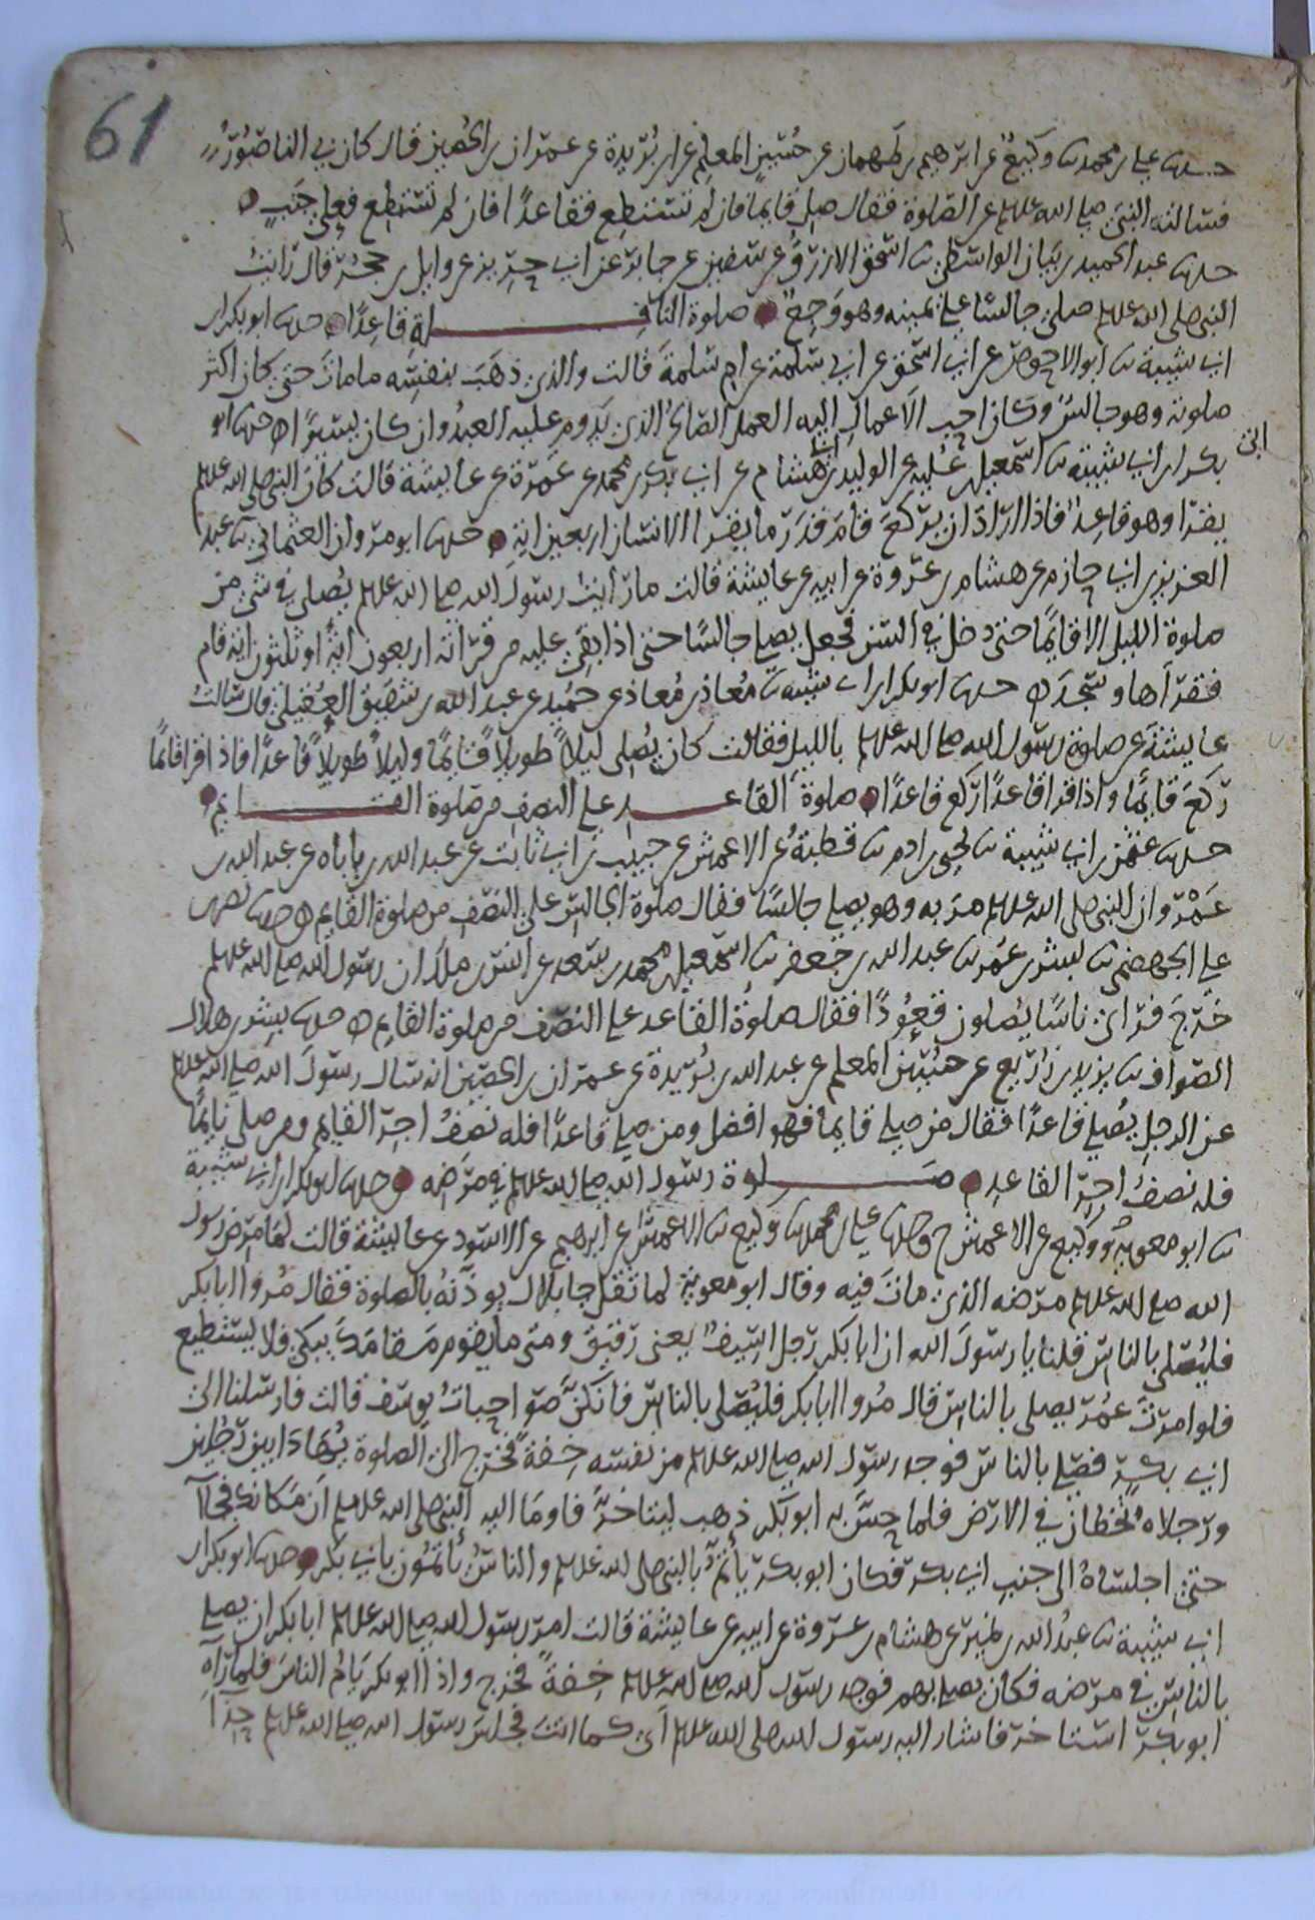 61
حدثنا علي بن محمد ثنا وكيع عن ابرهيم بن طهمان عن حسين المعلم عن ابن بريدة عن عمران بن الحصين قال كان بي الناصور
فسالت النبي صلى الله عليه وسلم عن الصلوة فقال صل قايما فان لم تستطع فقاعدا فان لم تستطع فعلى جنب
حدثنا عبد الحميد بن بيان الواسطي ثنا اسحق الازرق عن سفين عن جابر عن ابي حريز عن وايل بن حجر قال رايت
النبي صلى الله عليه وسلم صلى جالسا على يمينه وهو وجع صلوة النافلة قاعدا حدثنا ابو بكر بن
ابي شيبة ثنا ابو الاحوص عن ابي اسحق عن ابي سلمة عن ام سلمة قالت والذي ذهب بنفسه ما مات حتى كان اكثر
صلوته وهو جالس وكان احب الاعمال اليه العمل الصالح الذي يدوم عليه العبد وان كان يسيرا حدثنا ابو
بكر بن ابي شيبة ثنا اسمعيل بن علية عن الوليد بن ابي هشام عن ابي بكر بن محمد عن عمرة عن عايشة قالت كان النبي صلى الله عليه وسلم
ابي
يقرا وهو قاعد فاذا اراد ان يركع قام قدر ما يقرا الانسان اربعين اية حدثنا ابو مروان العثماني ثنا عبد
العزيز بن ابي حازم عن هشام بن عروة عن ابيه عن عايشة قالت ما رايت رسول الله صلى الله عليه وسلم يصلي في شي من
صلوة الليل الا قايما حتى دخل في السن فجعل يصلي جالسا حتى اذا بقي عليه من قرانه اربعون اية او ثلثون اية قام
فقراها وسجد حدثنا ابو بكر بن ابي شيبة ثنا معاذ بن معاذ عن حميد عن عبد الله بن شقيق العقيلي قال سالت
عايشة عن صلوة رسول الله صلى الله عليه وسلم بالليل فقالت كان يصلي ليلا طويلا قايما وليلا طويلا قاعدا فاذا قرا قايما
ركع قايما واذا قرا قاعدا ركع قاعدا صلوة القاعد على النصف من صلوة القايم
حدثنا عثمن بن ابي شيبة ثنا يحيى بن ادم ثنا قطبة عن الاعمش عن حبيب بن ابي ثابت عن عبد الله بن باباه عن عبد الله بن
عمرو ان النبي صلى الله عليه وسلم مر به وهو يصلي جالسا فقال صلوة الجالس على النصف من صلوة القايم حدثنا نصر بن
علي الجهضمي ثنا بشر بن عمر ثنا عبد الله بن جعفر ثنا اسمعيل بن محمد بن سعد عن انس بن ملك ان رسول الله صلى الله عليه وسلم
خرج فراى ناسا يصلون قعودا فقال صلوة القاعد على النصف من صلوة القايم حدثنا بشر بن هلال
الصواف ثنا يزيد بن زريع عن حسين المعلم عن عبد الله بن بريدة عن عمران بن الحصين انه سال رسول الله صلى الله عليه وسلم
عن الرجل يصلي قاعدا فقال من صلى قايما فهو افضل ومن صلى قاعدا فله نصف اجر القايم ومن صلى نايما
فله نصف اجر القاعد صلوة رسول الله صلى الله عليه وسلم في مرضه حدثنا ابو بكر بن ابي شيبة
ثنا ابو معوية ووكيع عن الاعمش ح وحدثنا علي بن محمد ثنا وكيع ثنا الاعمش عن ابرهيم عن الاسود عن عايشة قالت لما مرض رسول
الله صلى الله عليه وسلم مرضه الذي مات فيه وقال ابو معوية لما ثقل جا بلال يوذنه بالصلوة فقال مروا ابا بكر
فليصلي بالناس قلنا يا رسول الله ان ابا بكر رجل اسيف يعني رقيق ومتى ما يقوم مقامك يبكي فلا يستطيع
فلو امرت عمر يصلي بالناس قال مروا ابا بكر فليصلي بالناس فانكن صواحبات يوسف قالت فارسلنا الى
ابي بكر فصلى بالناس فوجد رسول الله صلى الله عليه وسلم من نفسه خفة فخرج الى الصلوة يهادا بين رجلين
ورجلاه تخطان في الارض فلما حس به ابو بكر ذهب ليتاخر فاوما اليه النبي صلى الله عليه وسلم ان مكانك فجاا
حتى اجلساه الى جنب ابي بكر فكان ابو بكر يأتم بالنبي صلى الله عليه وسلم والناس يأتمون بابي بكر حدثنا ابو بكر بن
ابي شيبة ثنا عبد الله بن نمير عن هشام بن عروة عن ابيه عن عايشة قالت امر رسول الله صلى الله عليه وسلم ابا بكر ان يصلي
بالناس في مرضه فكان يصلي بهم فوجد رسول الله صلى الله عليه وسلم خفة فخرج واذا ابو بكر يام الناس فلما راه
ابو بكر استاخر فاشار اليه رسول الله صلى الله عليه وسلم اي كما انت فجلس رسول الله صلى الله عليه وسلم حذا